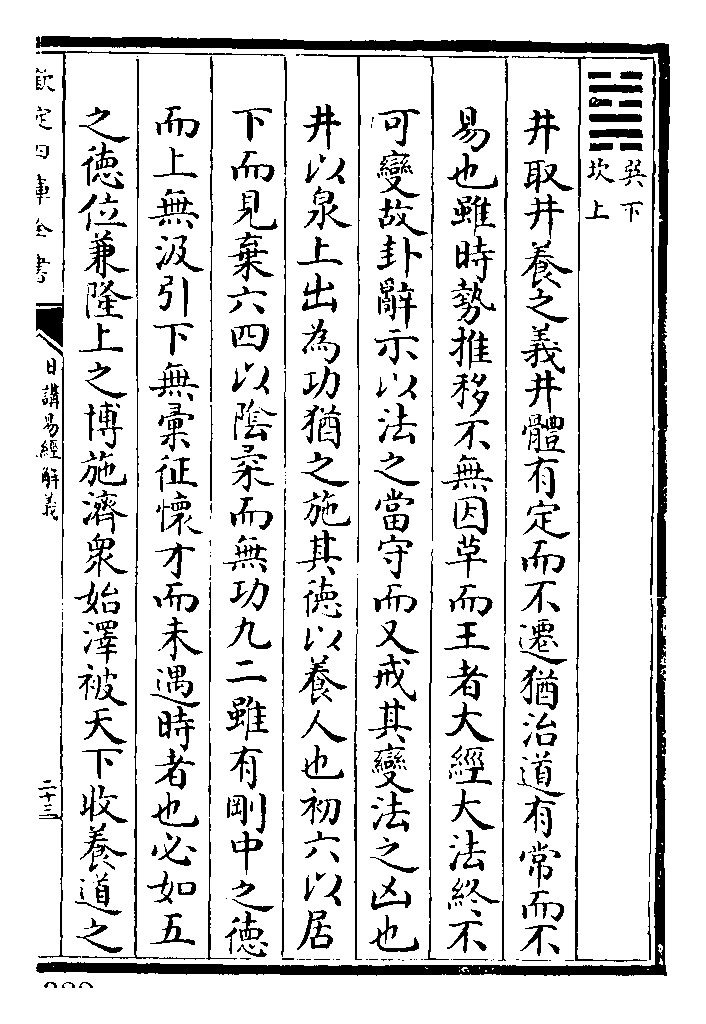 巽下
坎上
井取井養之義井體有定而不遷猶治道有常而不
易也雖時勢推移不無因革而王者大經大法終不
可變故卦辭示以法之當守而又戒其變法之凶也
井以泉上出為功猶之施其德以養人也初六以居
下而見棄六四以陰柔而無功九二雖有剛中之德
而上無汲引下無彙征懷才而未遇時者也必如五
之德位兼隆上之博施濟衆始澤被天下收養道之
欽定四庫全書
日講易經解義
二十三